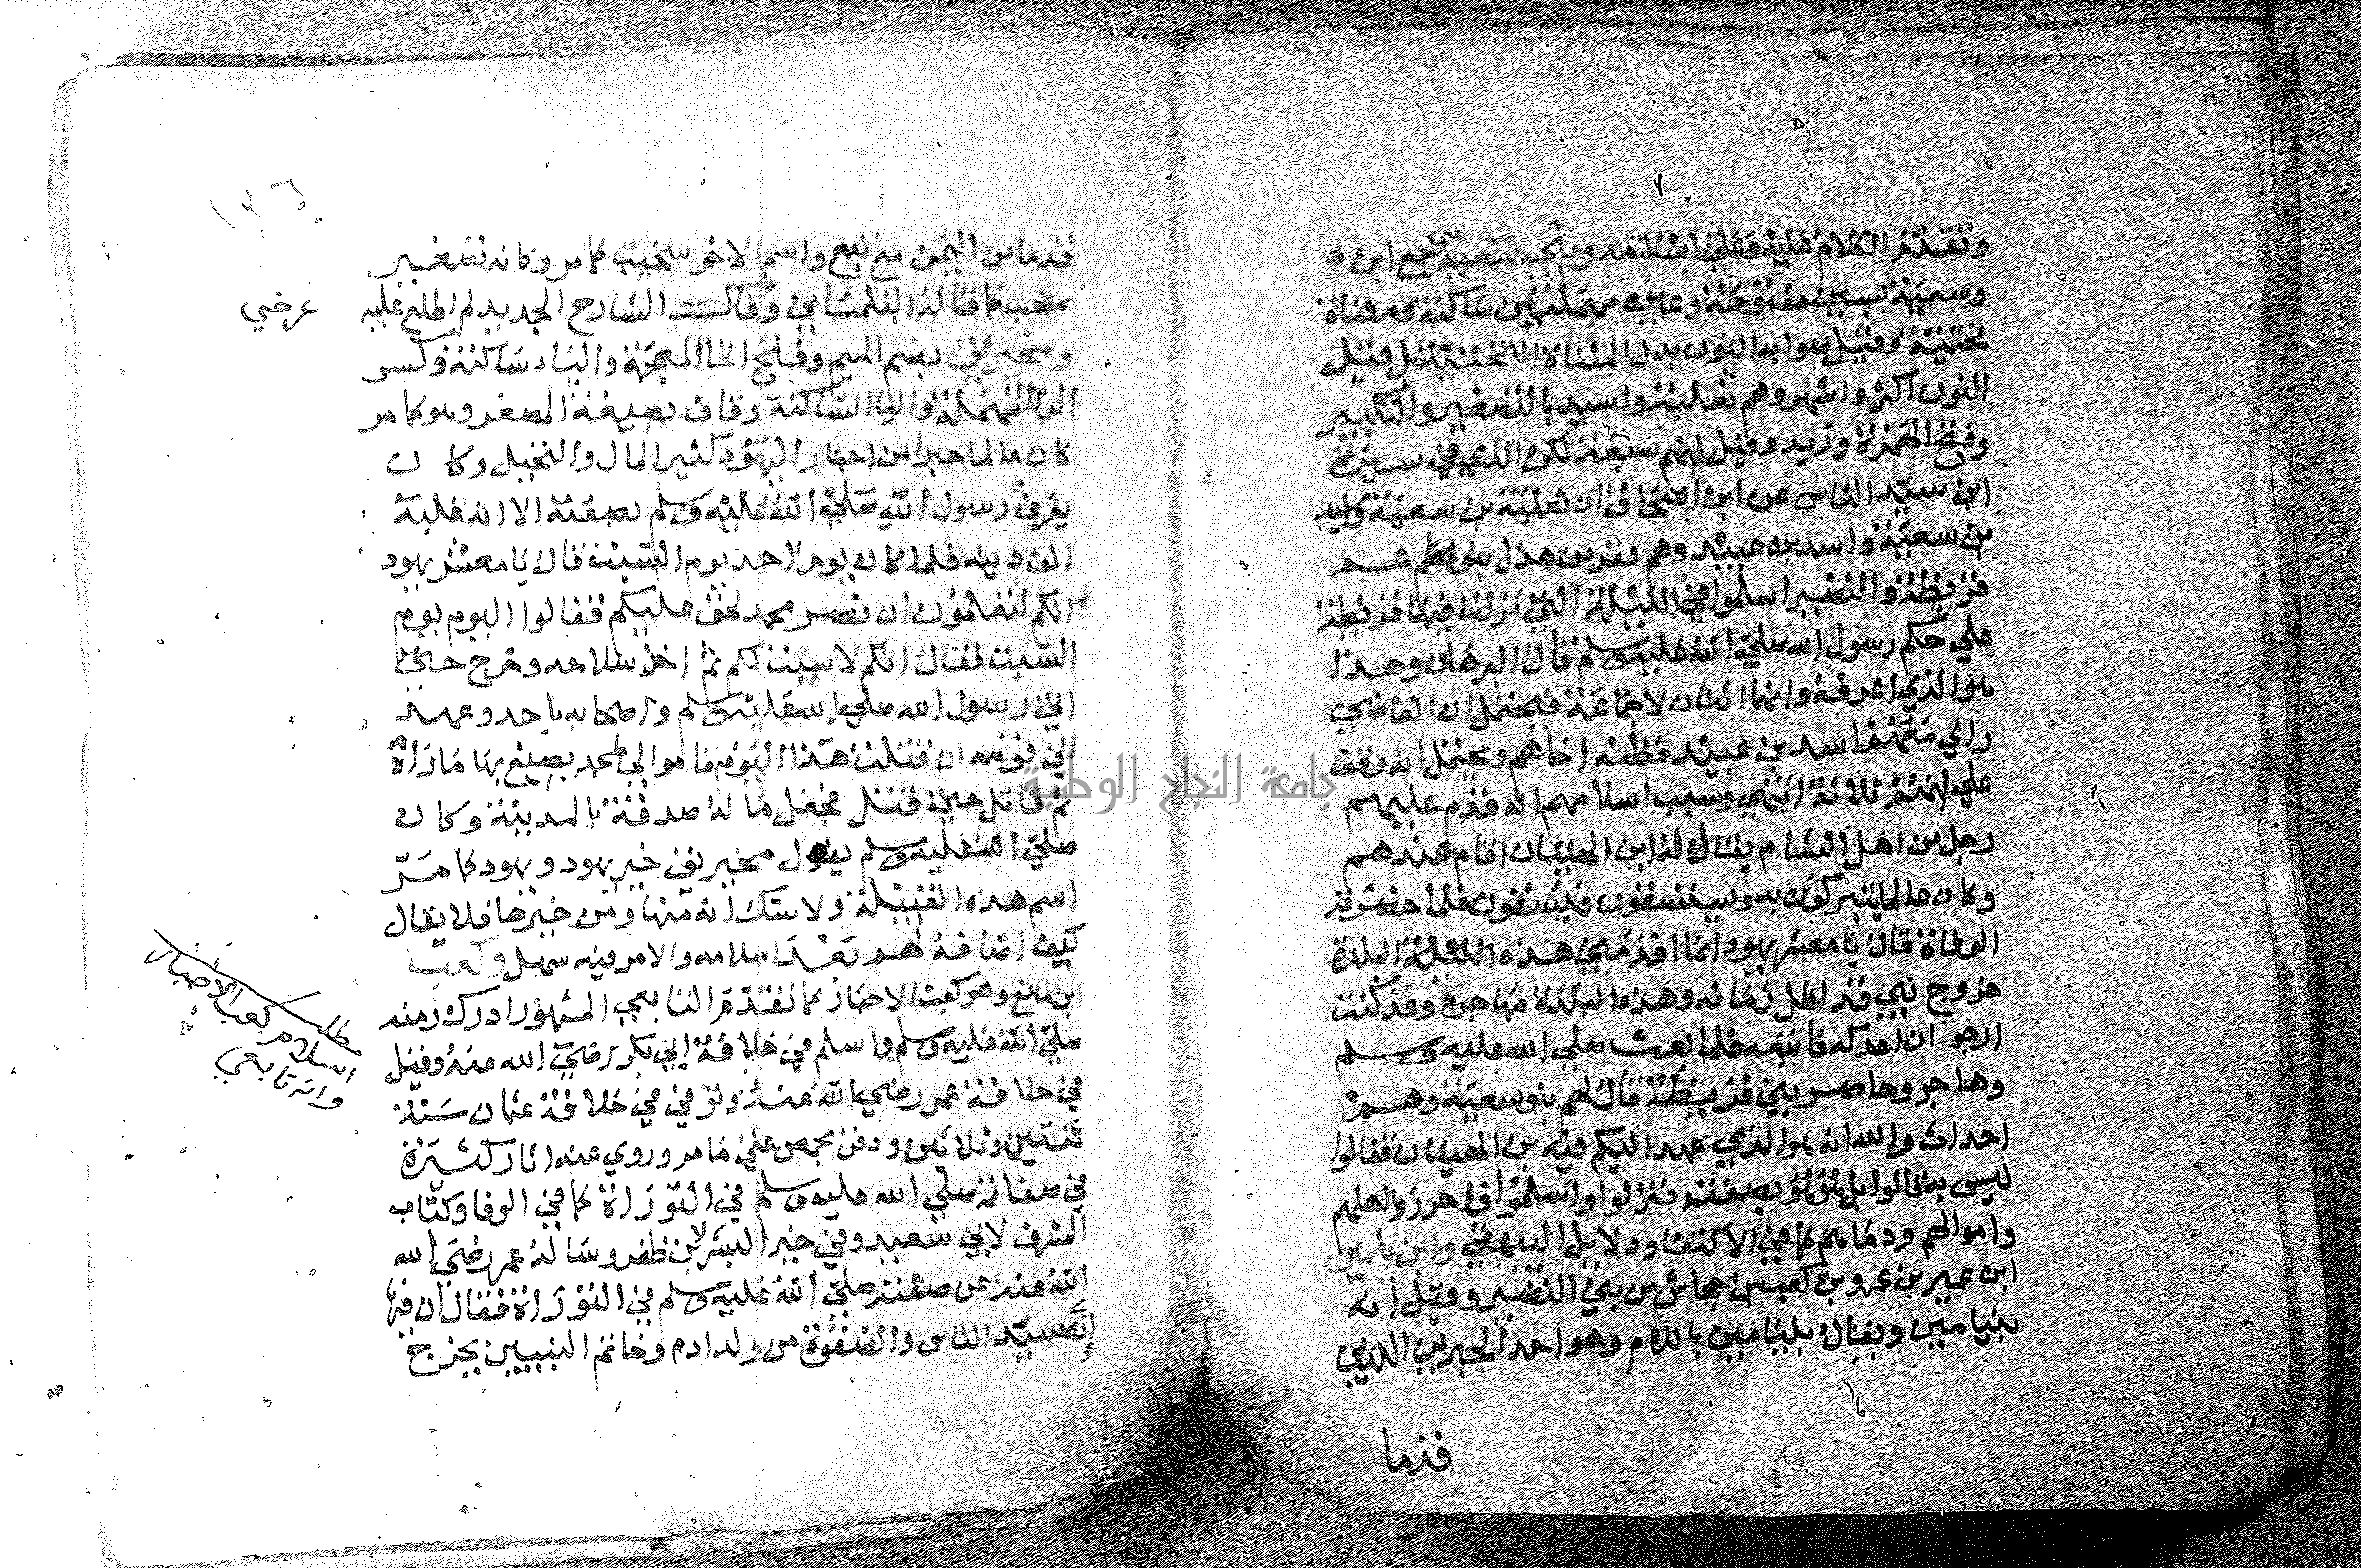 وتقدم الكلام عليه وعلى اسلامه وبني سعية جمع ابن
وسعية بسين مفتوحة وعين مهملتين ساكنة ومثناة
تحتية وقيل صوابه النون بدل المثناة التحتية بل قيل
النون اكثر واشهر وهم ثعلبة واسيد بالتصغير والتكبير
وفتح الهمزة وزيد وقيل انهم سبعة لكن الذي في سيرة
ابن سيد الناس عن ابن اسحاق ان ثعلبة بن سعية واسيد
بن سعية واسد بن عبيد وهم نفر من هذل بنو عم
قريظة والنضير اسلموا في الليلة التي نزلت فيها قريظة
على حكم رسول الله صلى الله عليه وسلم قال البرهان وهذا
هو الذي اعرفه وانما اثنان لا جماعة فيحتمل ان القاضي
راي معهما اسد بن عبيد فظنه اخاهم ويحتمل انه وقف
على انهم ثلاثة انتهى وسبب اسلامهم انه قدم عليهم
رجل من اهل الشام يقال له ابن الهيبان اقام عندهم
وكان عالما يتبركون به ويستسقون فيسقون فلما حضرته
الوفاة قال يا معشر يهود انما اقدمني هذه البلدة
خروج نبي قد اظل زمانه وهذه البلدة مهاجره وقد كنت
ارجو ان ادركه فاتبعه فلما بعث صلى الله عليه وسلم
وهاجر وحاصر بني قريظة قال لهم بنو سعية وهم
احداث والله انه هو الذي عهد اليكم فيه بن الهيبان فقالوا
ليس به قالوا بلى هو بصفته فنزلوا واسلموا فاحرزوا اهلهم
واموالهم ودماءهم كما في الاكتفا ودلايل البيهقي وابن يامين
ابن عمير بن عمرو بن كعب بن جحاش من بني النضير وقيل انه
بنيامين ويقال بليامين باللام وهو احد الحبرين اللذين
قدما
١٣٦
قدما من اليمن مع تبع واسم الاخر سخيت كما مر وكانه تصغير
سخت كما قاله التلمساني وقال الشارح الجديد لم اطلع عليه
عرضي
ومخيريق بضم الميم وفتح الخا المعجمة والياء ساكنة وكسر
الرا المهملة واليا الساكنة وقاف بصيغة المصغر وهو كما مر
كان عالما حبرا من احبار اليهود كثير المال والنخيل وكان
يعرف رسول الله صلى الله عليه وسلم بصفته الا انه غلبه
الف دينه فلما كان يوم احد يوم السبت قال يا معشر يهود
انكم لتعلمون ان نصر محمد لحق عليكم فقالوا اليوم يوم
السبت فقال انكم لا سبت لكم ثم اخذ سلاحه وخرج حتى
اتى رسول الله صلى الله عليه وسلم واصحابه باحد وعهد
الى قومه ان قتلت هذا اليوم فاموالي لمحمد يصنع بها ما راه
ثم قاتل حتى قتل فجعل ماله صدقة بالمدينة وكان
صلى الله عليه وسلم يقول مخيريق خير يهود ويهود كما مر
اسم هذه القبيلة ولا شك انه منها ومن خيرها فلا يقال
كيف اضافه لهم بعد اسلامه والامر فيه سهل وكعب
ابن ماتع وهو كعب الاحبار كما تقدم التابعي المشهور ادرك زمنه
صلى الله عليه وسلم واسلم في خلافة ابي بكر رضي الله عنه وقيل
في خلافة عمر رضي الله عنه وتوفي في خلافة عثمان سنة
ثنتين وثلاثين ودفن بحمص على ما مر وروي عنه اثار كثيرة
في صفاته صلى الله عليه وسلم في التوراة كما في الوفا وكتاب
الشرف لابي سعيد وفي خير البشر لابن ظفر وساله عمر رضي الله
الله عنه عن صفته صلى الله عليه وسلم في التوراة فقال ان فيها
انه سيد الناس والصفوة من ولد ادم وخاتم النبيين يخرج
اسلام كعب الاحبار
وانه تابعي
جامعة النجاح الوطنية